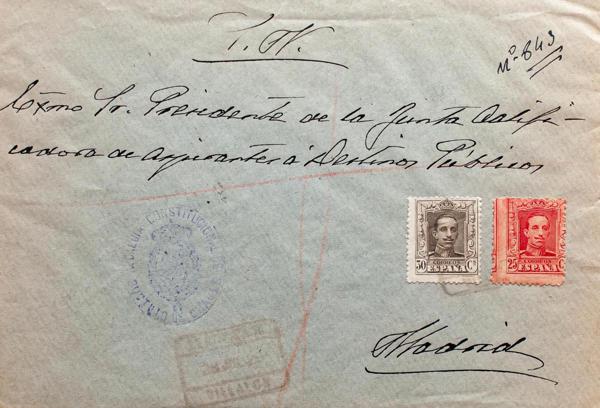 Nº 843
Exmo Sr. Presidente de la Junta Califi-
cadora de Aspirantes á Destinos Públicos
CORREOS
30 ESPAÑA Cs
CORREOS
25 ESPAÑA C
ALCALDIA CONSTITUCIONAL
Madrid